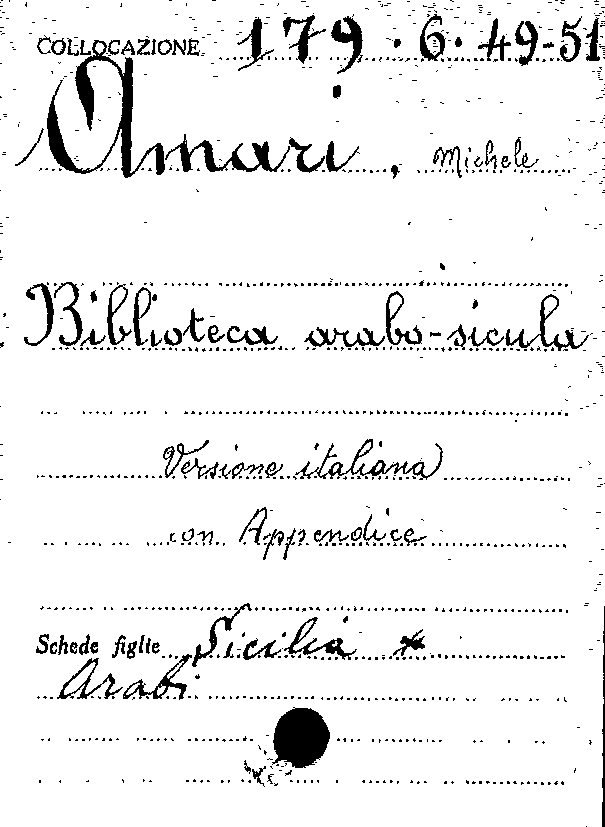 COLLOCAZIONE 179.6.49-51
Amari, Michele
Biblioteca arabo-sicula
Versione italiana
con Appendice
Schede figlie Sicilia *
Arabi